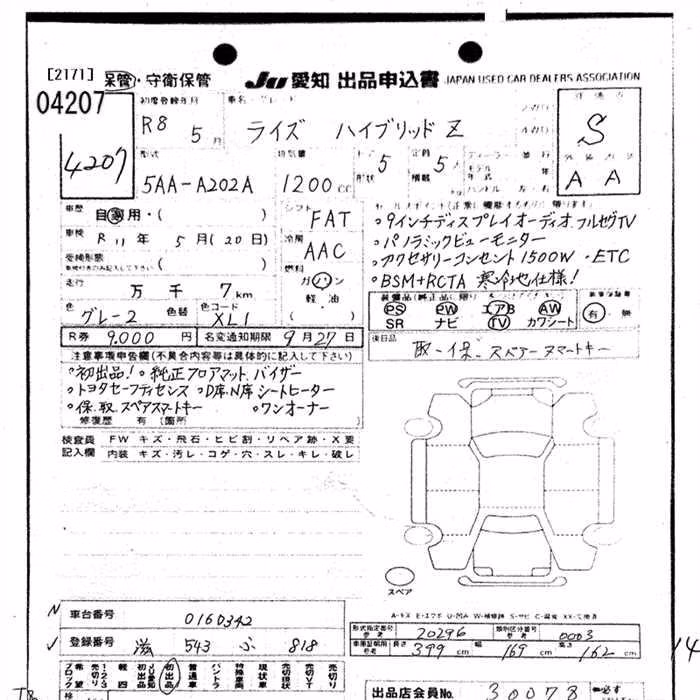 [2171] 保管・守衛保管 Ju 愛知 出品申込書 JAPAN USED CAR DEALERS ASSOCIATION
04207
4207
初度登録年月 車名・グレード
R8 5月 ライズ ハイブリッド Z
S
型式 排気量 ドア 形状 定員 積載
5AA-A202A 1200cc 5 5人
A A
車歴 自家用・( ) シフト FAT
車検 R 11年 5月(20日) 冷房 AAC
受検形態
車検付きのみ記入して下さい ( ) 燃料 ガソリン 軽油 ( )
走行 万 千 7km
色 グレー2 色替 色コード XL1
R券 9,000円 名変通知期限 9月27日
。9インチディスプレイオーディオ フルセグTV
・パノラミックビューモニター
・アクセサリーコンセント1500W ・ETC
・BSM+RCTA 寒冷地仕様!
PS PW エアB AW
SR ナビ TV カワシート
有・無
後日品 取・保・スペアースマートキー
注意事項申告欄(不具合内容等は具体的に記入して下さい)
。初出品!。純正フロアマット、バイザー
。トヨタセーフティセンス 。D席、N席シートヒーター
。保、取、スペアスマートキー 。ワンオーナー
修復歴 有 (箇所
検査員記入欄 FW キズ・飛石・ヒビ割・リペア跡・X要
内装 キズ・汚レ・コゲ・穴・スレ・キレ・破レ
スペア
車台番号 0160342
登録番号 滋 543 ぶ 818
型式指定番号 参考 20296 類別区分番号 参考 0003
車庫証明用 参考 長さ 399cm 幅 169cm 高さ 162cm
14
出品店会員No. 30078